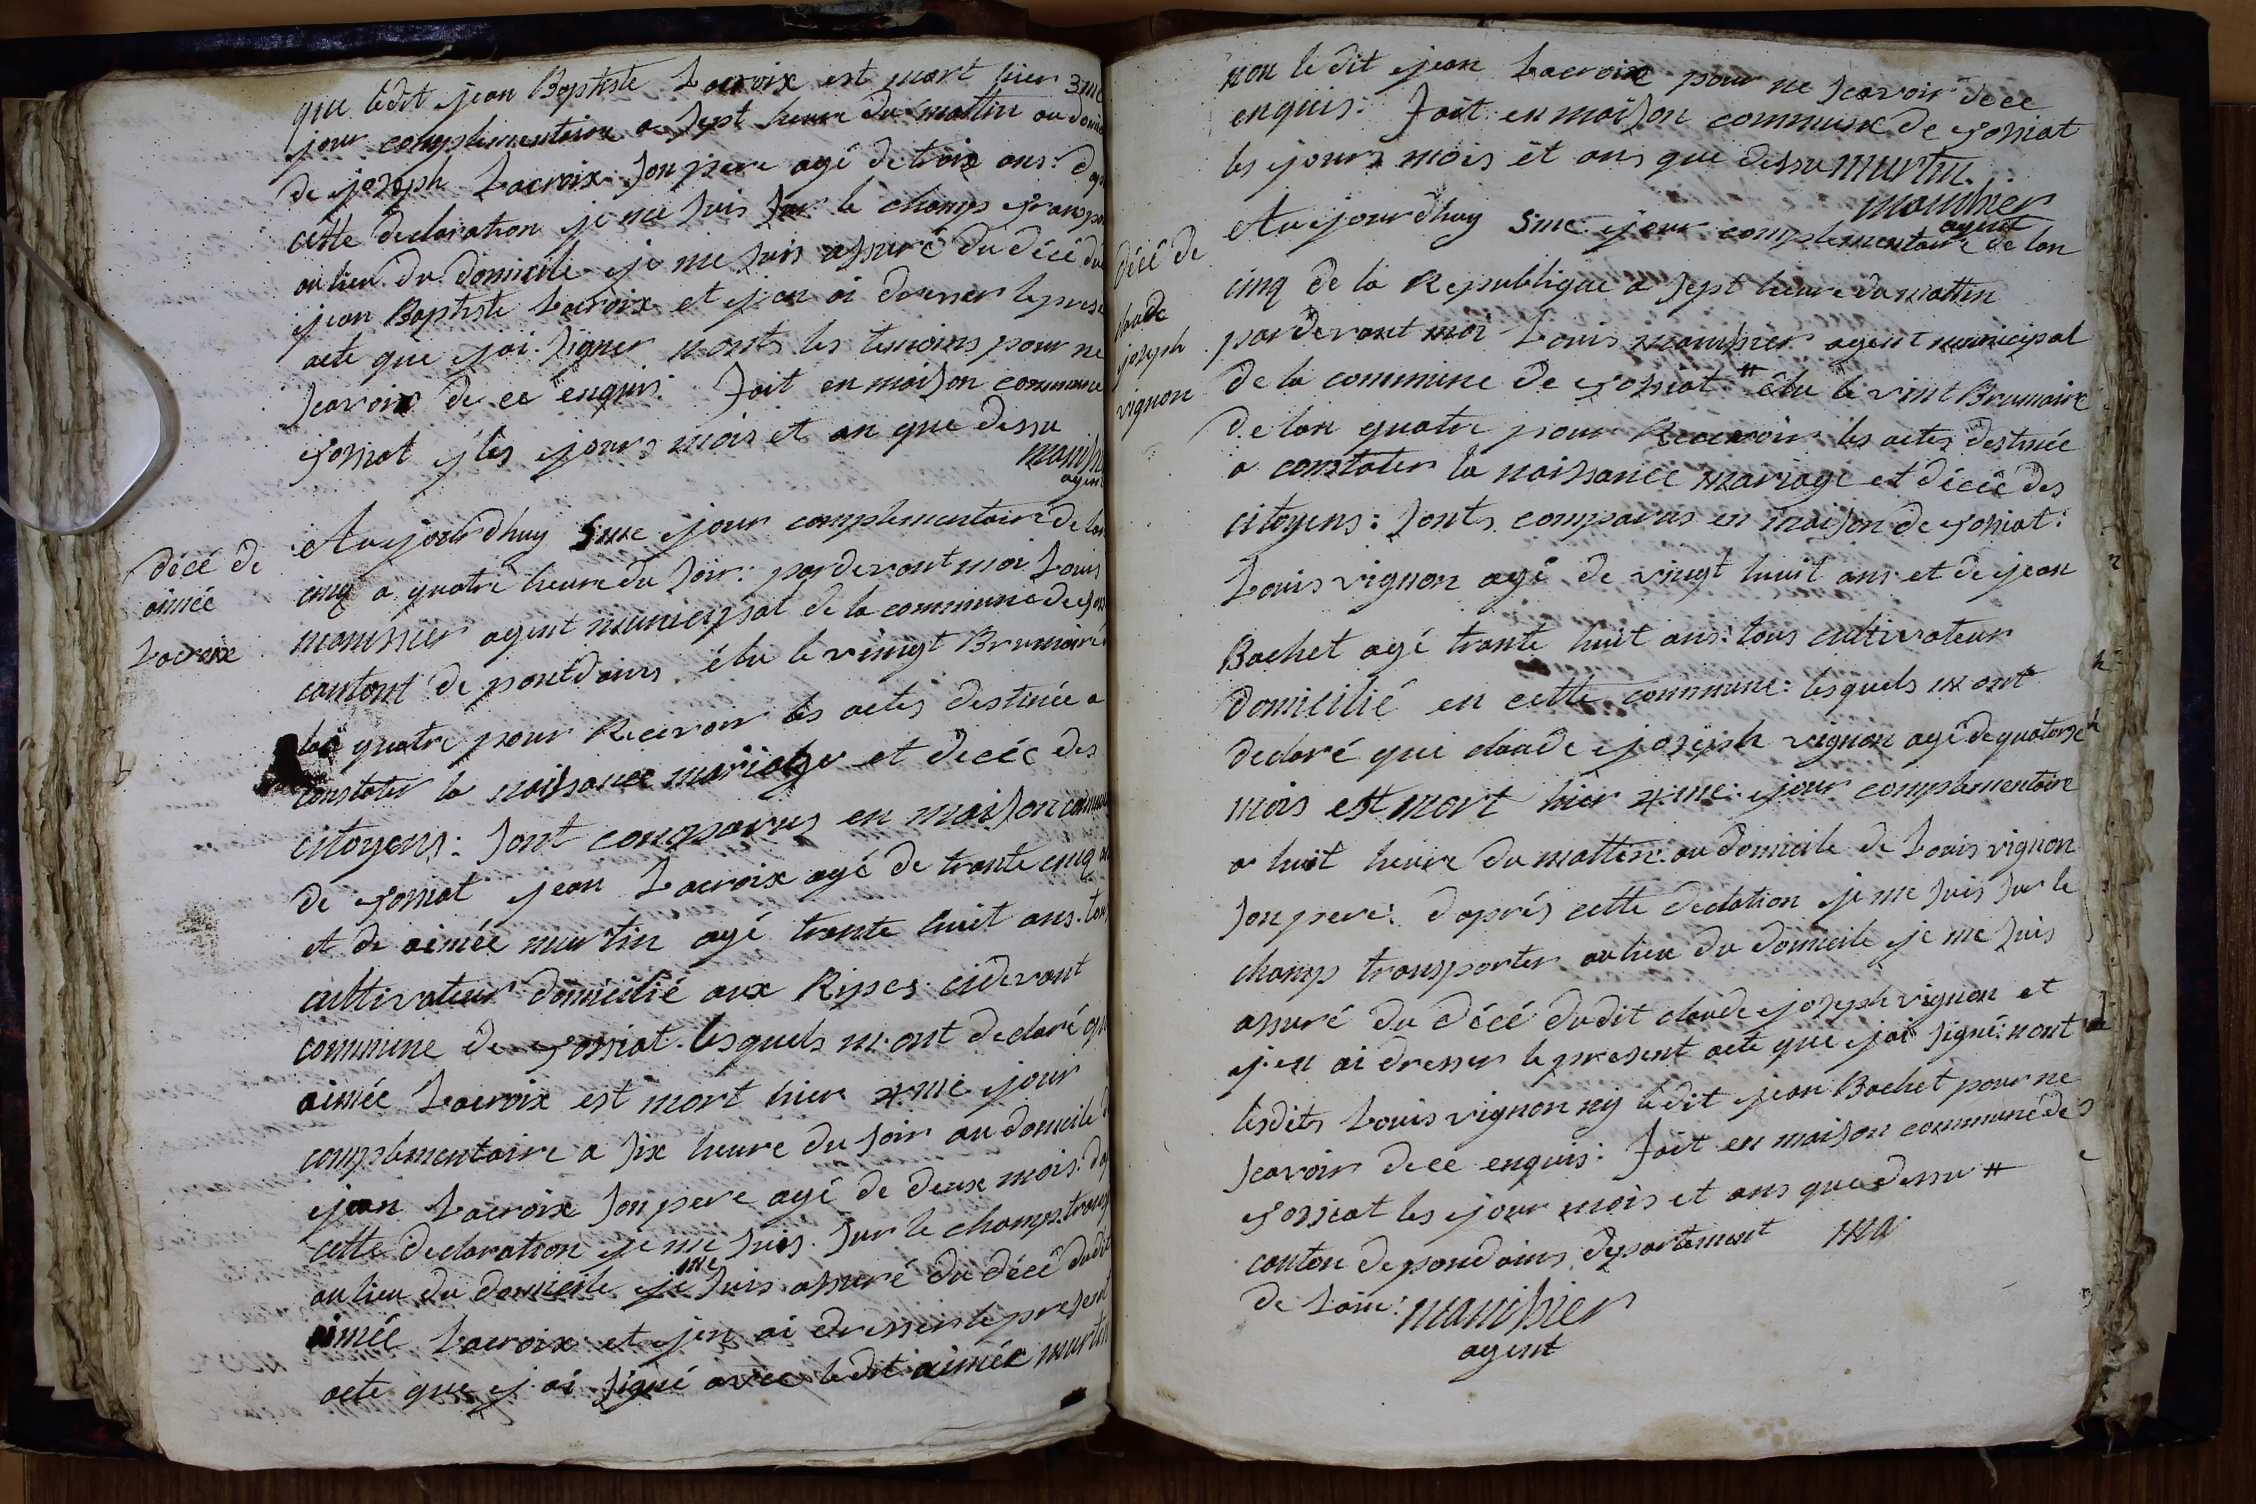 que ledit jean Baptiste Lacroix est mort hier 3me
jour complementaire a sept heure du mattin au domi
de joseph Lacroix son pere agé de trois ans: d'ap
cette declaration je me suis sur le champs transpor
au lieu du domicile je me suis assuré du décé du
jean Baptiste Lacroix et j'en ai dresser le prese
acte que j'ai signer nonts les temoins pour ne
scavoir de ce enquis: fait en maison commune
jossiat y les jours mois et an que dessu
agent
décé de
aimée
Lacroix
Aujourdhuy 5me jour complementaire de lan
cinq a quatre heure du soir: pardevant moi Louis
manissier agent municipal de la commune de jos
cantont de pontdains élu le vingt Brumaire
lan quatre pour Recevoir les actes destinée a
constater la naissance mariage et decée des
citoyens: sont comparus en maison commu
de jossiat jean Lacroix agé de trante cinq an
et de aimée martin agé trante huit ans. tous
cultivateur domicilié aux Ripes cidevant
commune de jossiat. lesquels m'ont declaré que
aimée Lacroix est mort hier 4me jour
complementaire a six heure du soir au domicile d
jean Lacroix son pere agé de deux mois. d'ap
cette declaration je me suis sur le champs. transp
au lieu du domicile je me suis assuré du décé dudit
aimée Lacroix et j'en ai dresser le present
acte que j'ai signé avec ledit aimée martin
non le dit jean Lacroix pour ne scavoir de ce
enquis: fait en maison commune de jossiat
les jours mois et ans que dessu martin
manissier
agent
décé de
claude
joseph
vignon
Aujourdhuy 5me jour complementaire de lan
cinq de la Republique a sept heure du mattin
pardevant moi Louis manissier agent municipal
de la commune de jossiat # élu le vint Brumaire
de lan quatre pour Recevoir les actes destinée
a constater la naissance mariage et décéé des
citoyens: sonts comparus en maison de jossiat:
Louis vignon agé de vingt huit ans et de jean
Bochet agé trante huit ans: tous cultivateur
domicilié en cette commune: lesquels m'ont
declaré que claude joseph vignon agé de quatorse
mois est mort hier 4me jour complementaire
a huit heure du mattin: au domicile de Louis vignon
son pere: d'aprés cette declation je me suis sur le
champ transporter au lieu du domicile je me suis
assuré du décé dudit claude joseph vignon et
j'en ai dresser le present acte que j'ai signé: nont
lesdits Louis vignon ny ledit jean Bochet pour ne
scavoir de ce enquis: fait en maison commune de
jossiat les jour mois et ans que dessu #
canton de pondains departement
de Lain: manissier
agent